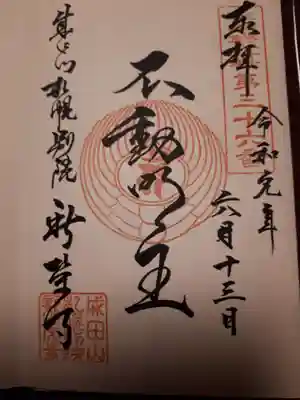 奉拝
第三十六番
令和元年
六月十三日
不動明王
成田山札幌別院 新栄寺
成田山